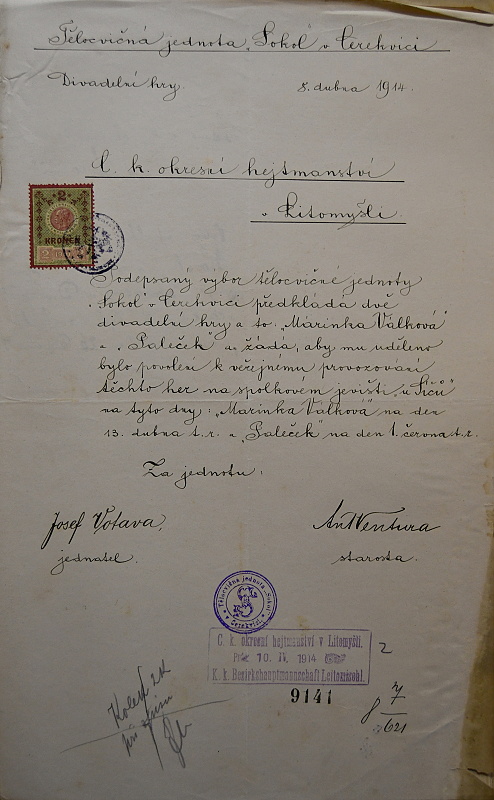 Tělocvičná jednota „Sokol" v Cerekvici
Divadelní hry.
8. dubna 1914.
C. k. okresní hejtmanství
v Litomyšli.
2
KRONEN
Podepsaný výbor tělocvičné jednoty
„Sokol" v Cerekvici předkládá dvě
divadelní hry a to: „Marinka Válková"
a „Paleček" a žádá, aby mu uděleno
bylo povolení k veřejnému provozování
těchto her na spolkovém jevišti „u Síčů"
na tyto dny: „Marinka Válková" na den
13. dubna t. r. a „Paleček" na den 1. června t. r.
Za jednotu:
Josef Votava,
jednatel.
Ant Ventura
starosta.
Tělocvičná jednota „Sokol"
v Cerekvici
C. k. okresní hejtmanství v Litomyšli.
Präs. 10. IV. 1914
K. k. Bezirkshauptmannschaft Leitomischl.
9141
2
Kolek 2K
8 7/621